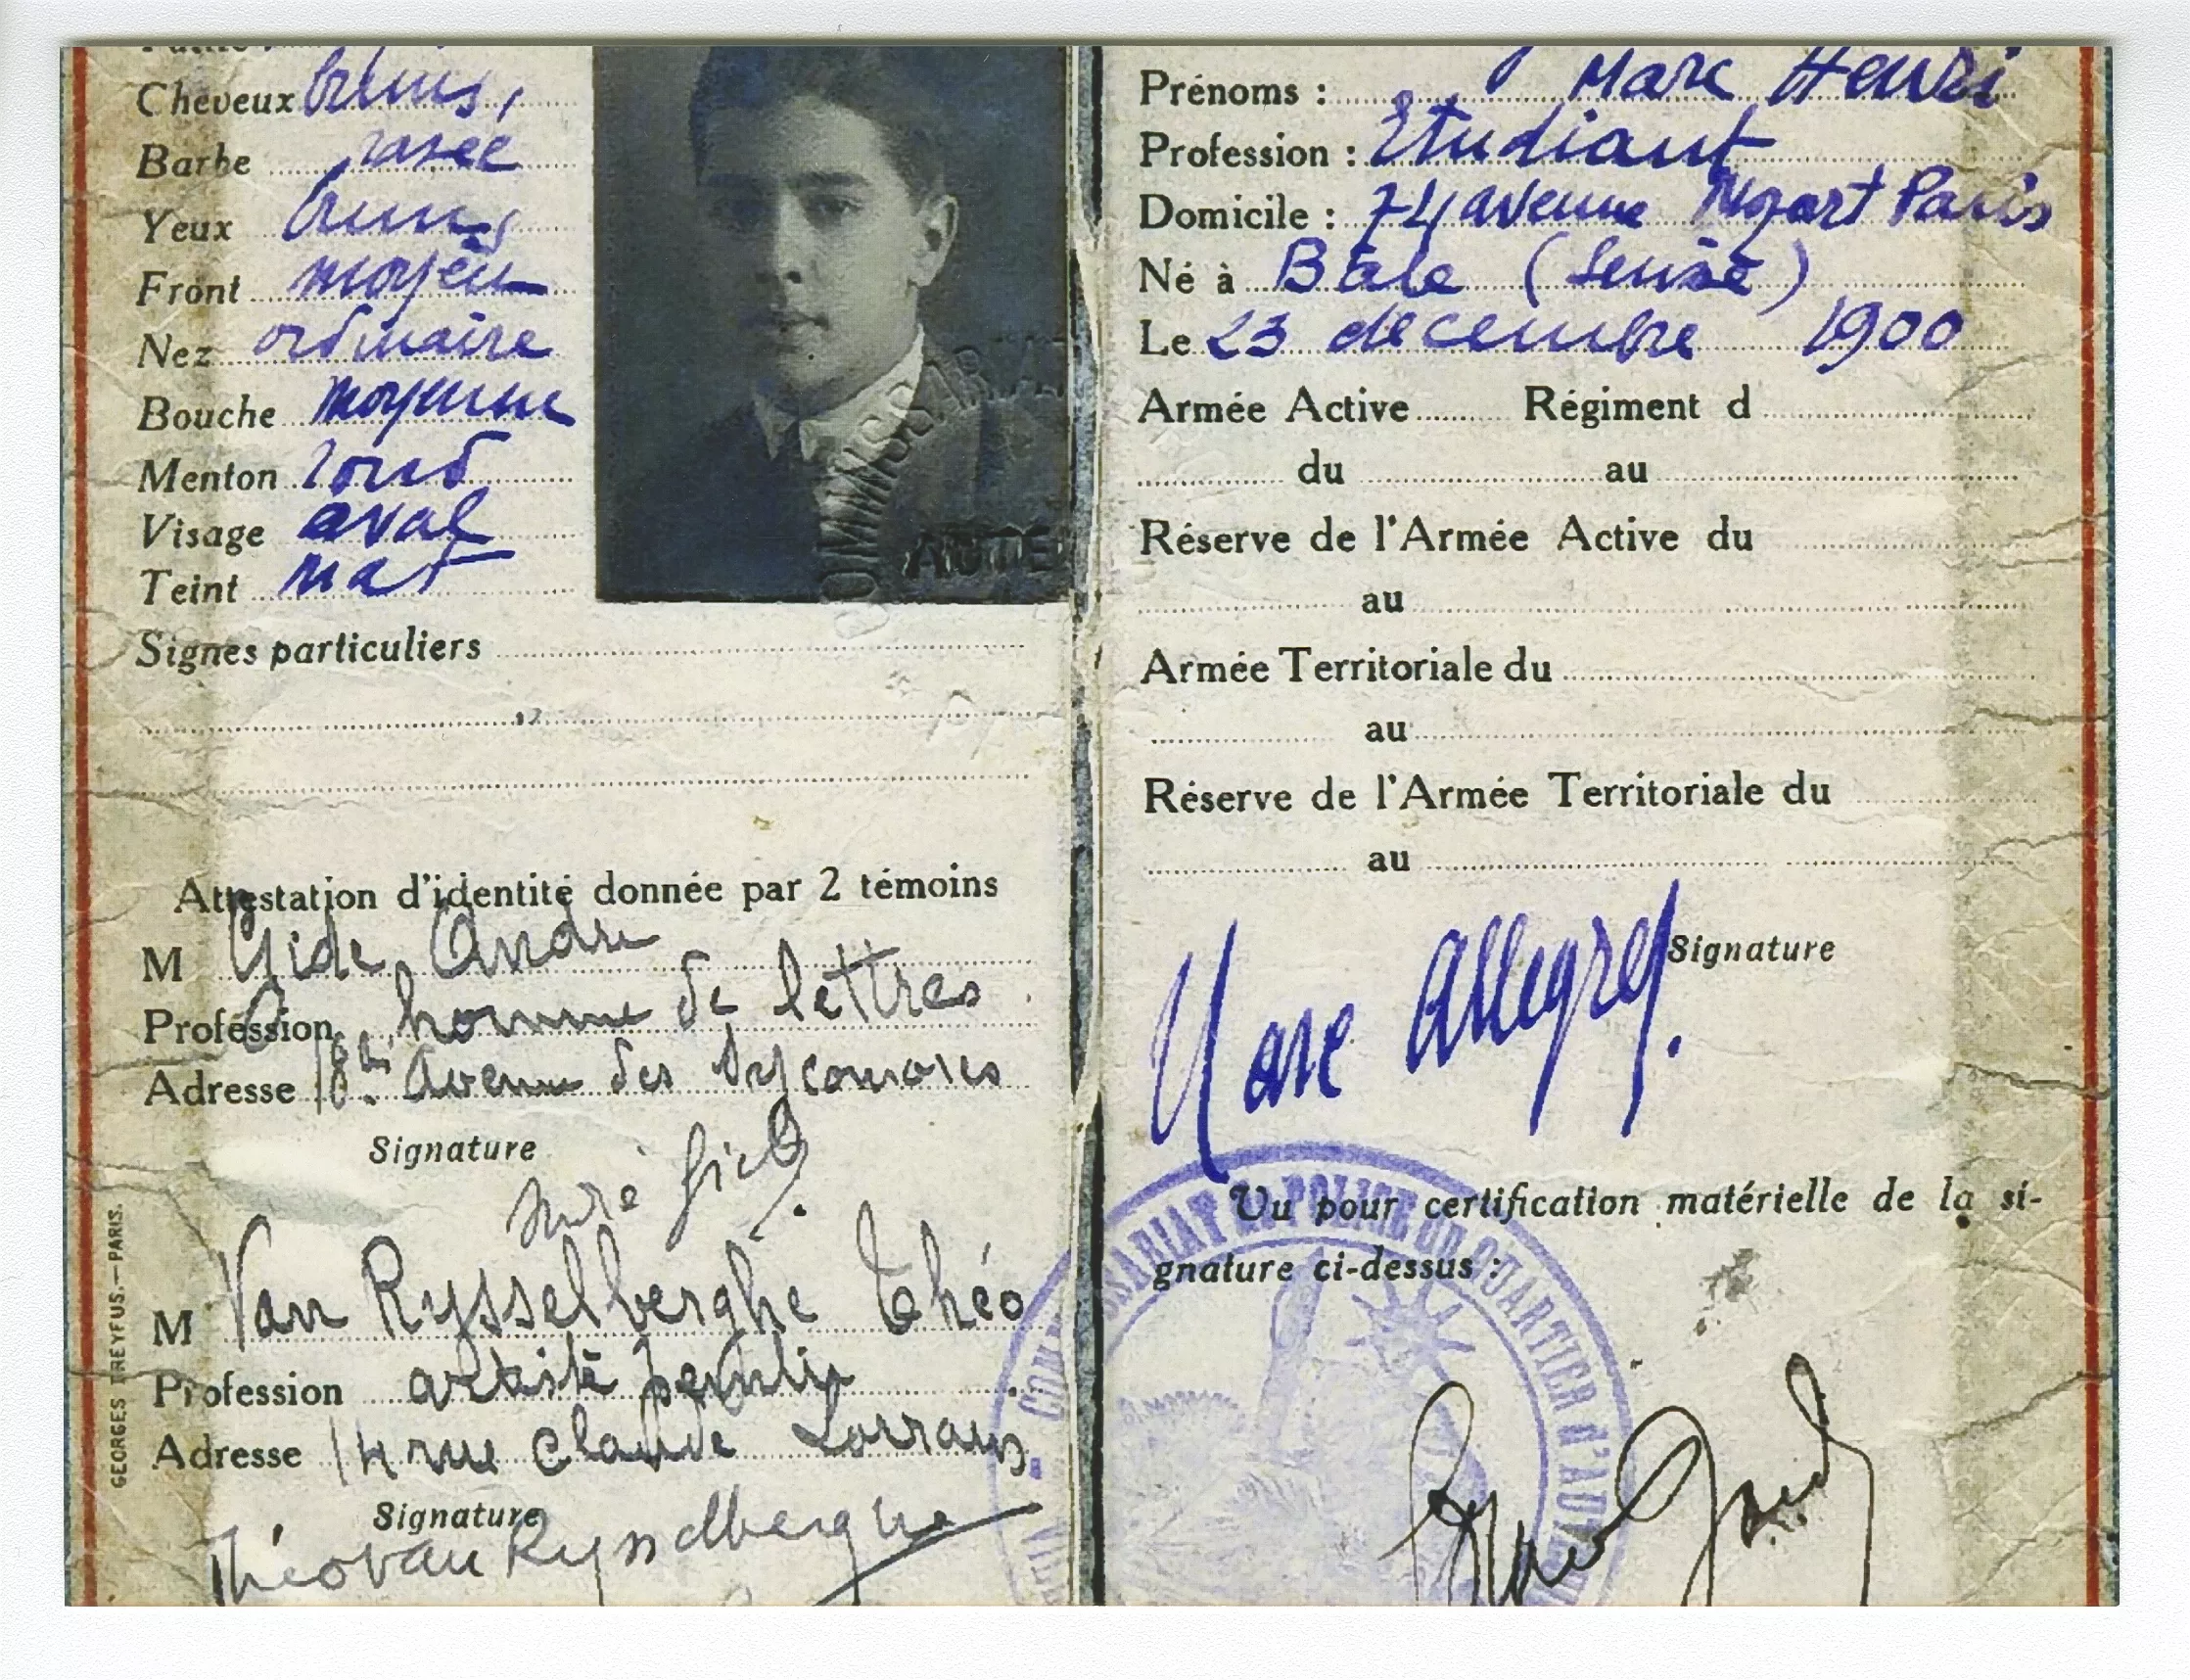 Cheveux bruns,
Barbe rasée
Yeux bruns
Front moyen
Nez ordinaire
Bouche moyenne
Menton rond
Visage oval
Teint mat
Signes particuliers
Attestation d'identité donnée par 2 témoins
M Gide, André
Profession homme de lettres
Adresse 18bis Avenue des Sycomores
Signature
André Gide
M Van Rysselberghe Théo
Profession artiste peintre
Adresse 14 rue Claude Lorrain
Signature
Théo van Rysselberghe
GEORGES DREYFUS.—PARIS.
AUTE
Prénoms : Marc Henri
Profession : Etudiant
Domicile : 74 avenue Mozart Paris
Né à Bâle (Suisse)
Le 23 decembre 1900
Armée Active Régiment d
du au
Réserve de l'Armée Active du
au
Armée Territoriale du
au
Réserve de l'Armée Territoriale du
au
Signature
Marc Allegret.
Vu pour certification matérielle de la si-
gnature ci-dessus :
COMMISSARIAT DE POLICE DU QUARTIER D'AUTEUIL